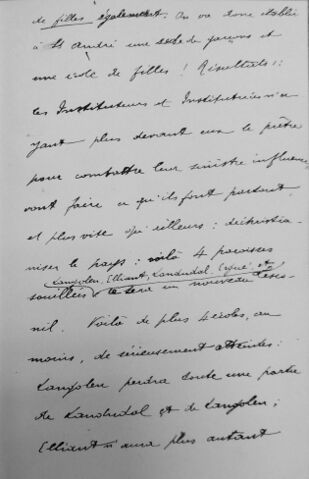 de filles également. On va donc établir
à St André une école de garçons et
une école de filles ! Résultats :
les Instituteurs et Institutrices n'a
yant plus devant eux le prêtre
pour combattre leur sinistre influence
vont faire ce qu'ils font partout
et plus vite qu'ailleurs : déchristia
niser le pays : voilà 4 paroisses
Langolen, Elliant, Landudal, et
souillées ce sera un nouveau
nil. Voilà de plus 4 écoles, au
moins, de sérieusement atteintes :
Langolen perdra toute une partie
de Landudal et de Langolen ;
Elliant n'aura plus autant